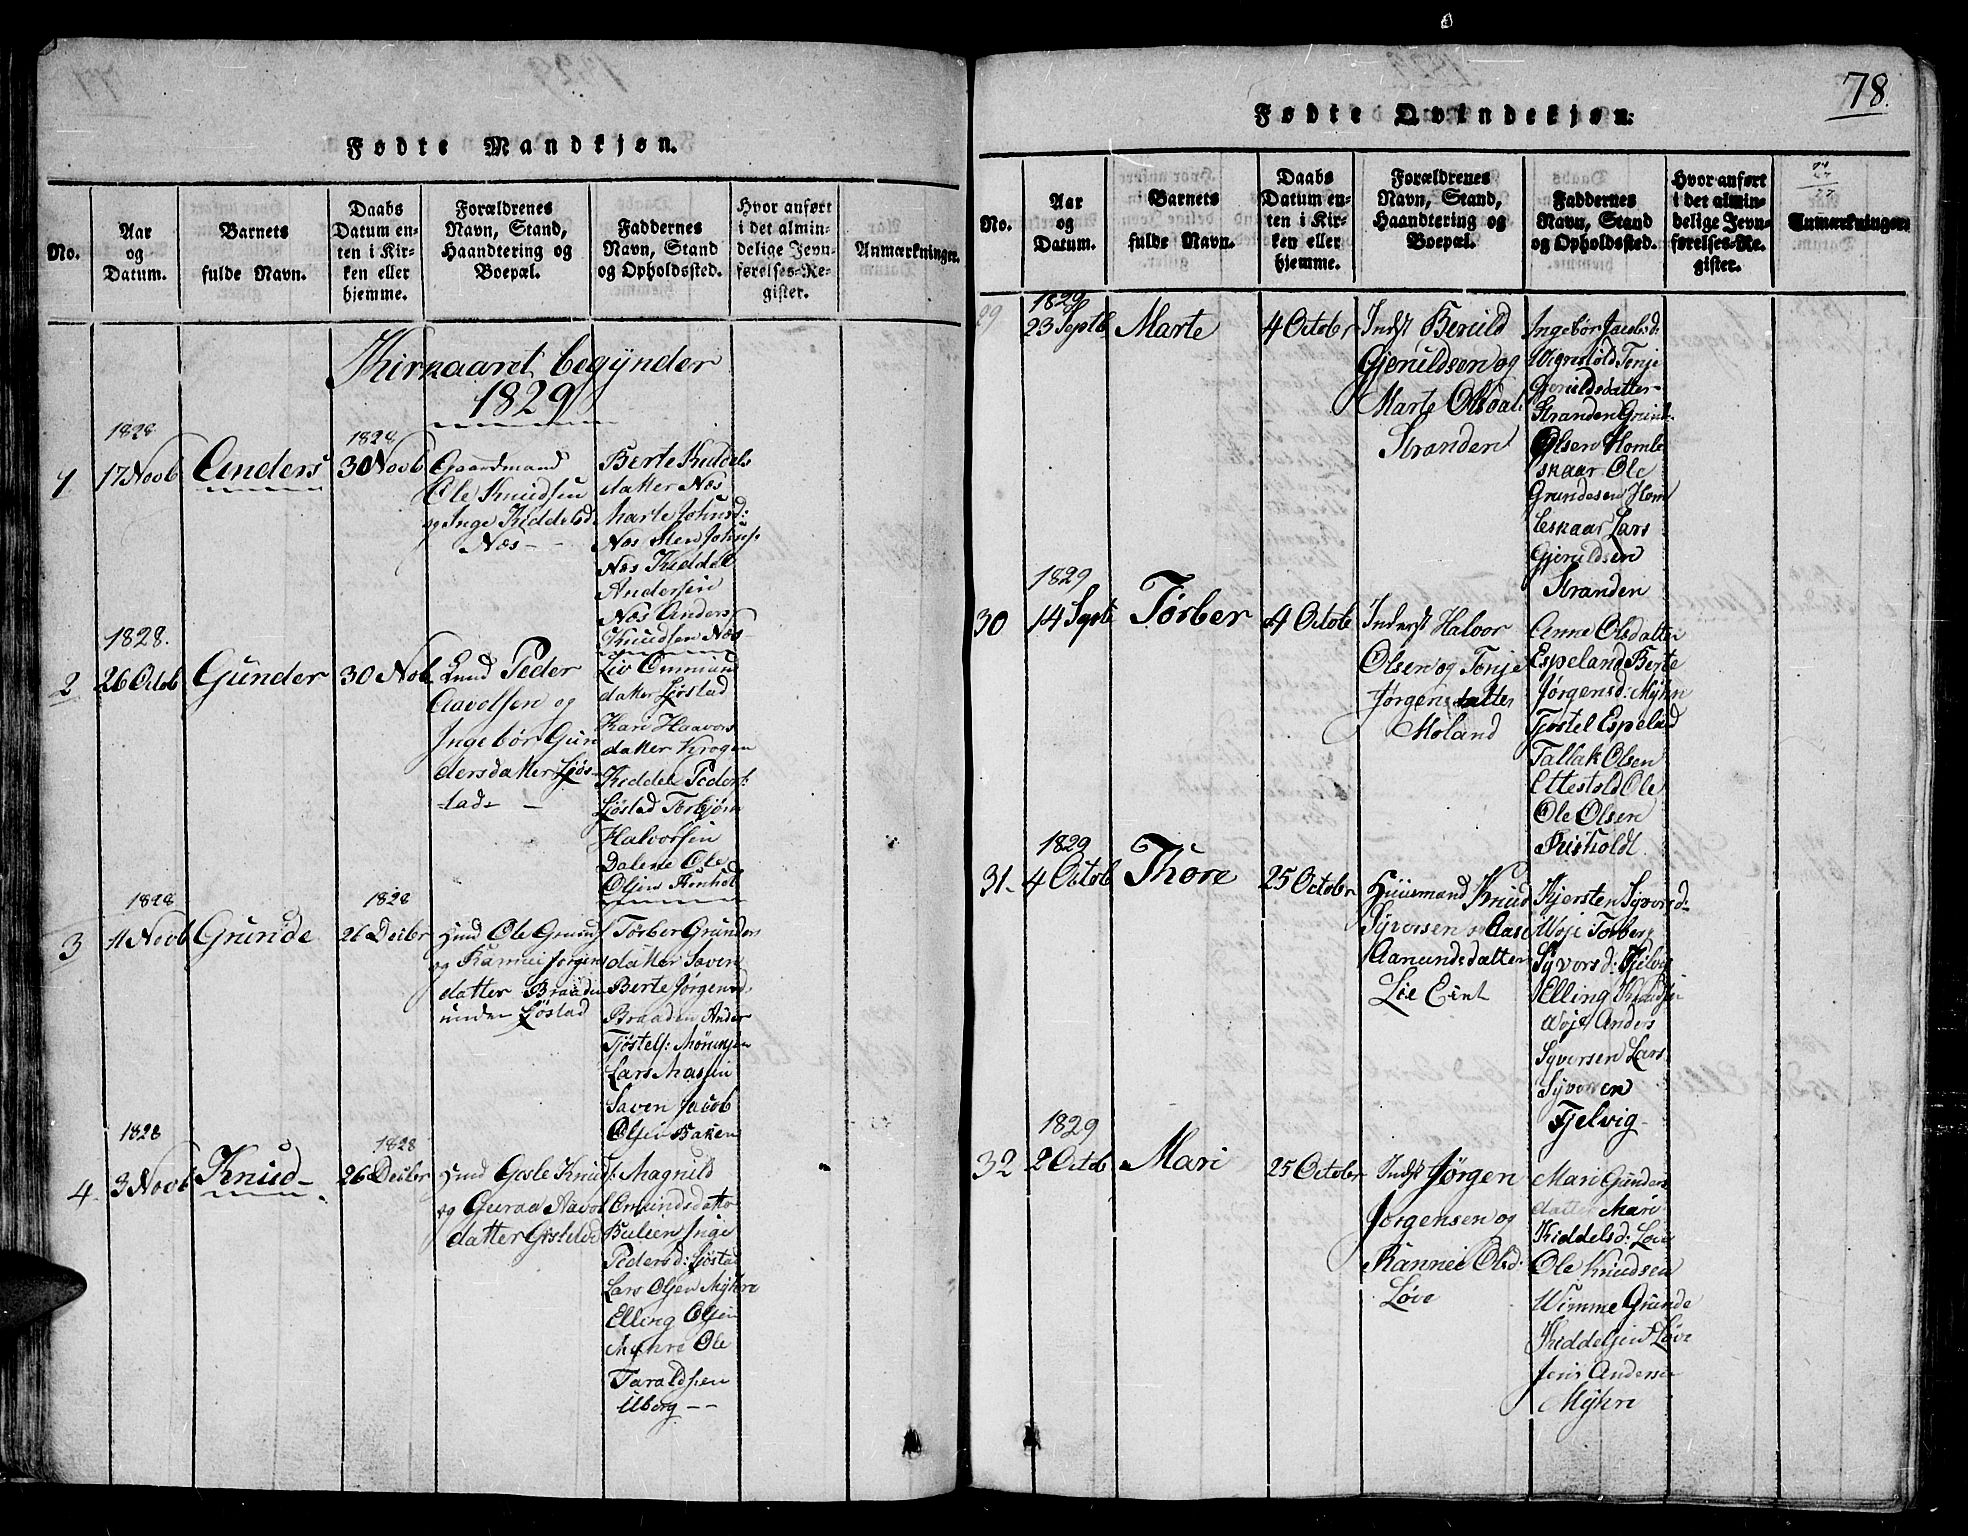 Fødte Mandkjøn.
No.
Aar
og
Datum.
Barnets
fulde Navn.
Daabs
Datum en-
ten i Kir-
ken eller
hjemme.
Forældrenes
Navn, Stand,
Haandtering og
Boepæl.
Faddernes
Navn, Stand
og Opholdssted.
Hvor anført
i det almin-
delige Jevn-
førelses-Re-
gister.
Anmærkninger.
Kirkaaret begÿnder
1829
1
1828
17 Novb
Anders
1828
30 Novb
Gaardmand
Ole Knudsen
og Inge Kiddelsd
Næs
Berte Kiddels
datter Næs
Marte Johnsd:
Næs Sten Johns:
Næs Kiddel
Andersen
Næs Anders
Knudsen Næs
2
1828.
26 Octob
Gunder
30 Nob
Peder
Aavolsen og
Ingebør Gun
dersdatter Ljøs-
tad
Liv Ommund
datter Ljøstad
Kari Haavors
datter Krogen
Kiddel Peders:
Ljøstad Torbjørn
Halvorsen
Dalene Ole
Olsen
3
1828
11 Novb
Grunde
1828
26 Decbr
Huusmd Ole Grunds
og Rannei Jørgens
datter Braaden
under Ljøstad
Torber Grunders
datter Saven
Berte Jørgensd:
Braaden Ander
Tjøstels:
Lars
Saven Jacob
Olsen Bakken
4
1828
3 Novb
Knud
1828
26 Decbr
Huusmd Gisle Knuds:
og Guraa Aavol
datter
Magnild
Omundsdatter
Inge
Pedersd: Ljøstad
Lars Olsen Mÿhre
Elling Olsen
Mÿhre Ole
Taraldsen
Uberg
78.
Fødte Qvindekjøn.
No.
Aar
og
Datum.
Barnets
fulde Navn.
Daabs
Datum en-
ten i Kir-
ken eller
hjemme.
Forældrenes
Navn, Stand,
Haandtering og
Boepæl.
Faddernes
Navn, Stand
og Opholdssted.
Hvor anført
i det almin-
delige Jevn-
førelses-Re-
gister.
Anmærkninger
29
1829
23 Septb
Marte
4 Octobr
Indst Beruld
Gjeruldsen og
Marte Olsdat:
Stranden
Ingebør Jacobsd:
Tonje
Gjeruldsdatter
Stranden Grunde
Olsen Homle
skaar Ole
Grundesen Hom
leskaar Lars
Gjeruldsen
Stranden
30
1829
14 Septb
Tørber
4 Octob
Inderst Halvor
Olsen og Tonje
Jørgensdatter
Moland
Anne Olsdatter
Espeland Berte
Jørgensd: Mÿhr
Tjøstel Espelad
Tallak Olsen
Ettestold Ole
Ole Olsen
Risholdt
31
1829
4 Octob
Thore
25 Octobr
Huusmand Knud
Syversen og Aase
Aanundsdatter
Lie Eint
Kjersten Syversd:
Woje Torberg
Syvorsd: Fjelvig
Elling Knudsen
Woje Anders
Syversen Lars
Syvorsen
Fjelvig
32
1829
2 Octob
Mari
25 Octobr
Indst Jørgen
Jørgensen og
Rannei Olsd:
Løve
Mari Gunders
datter Mari
Kiddelsd: Løve
Ole Knudsen
Wimme Grunde
Kiddelsen Løve
Jens Anderse
Mÿhre